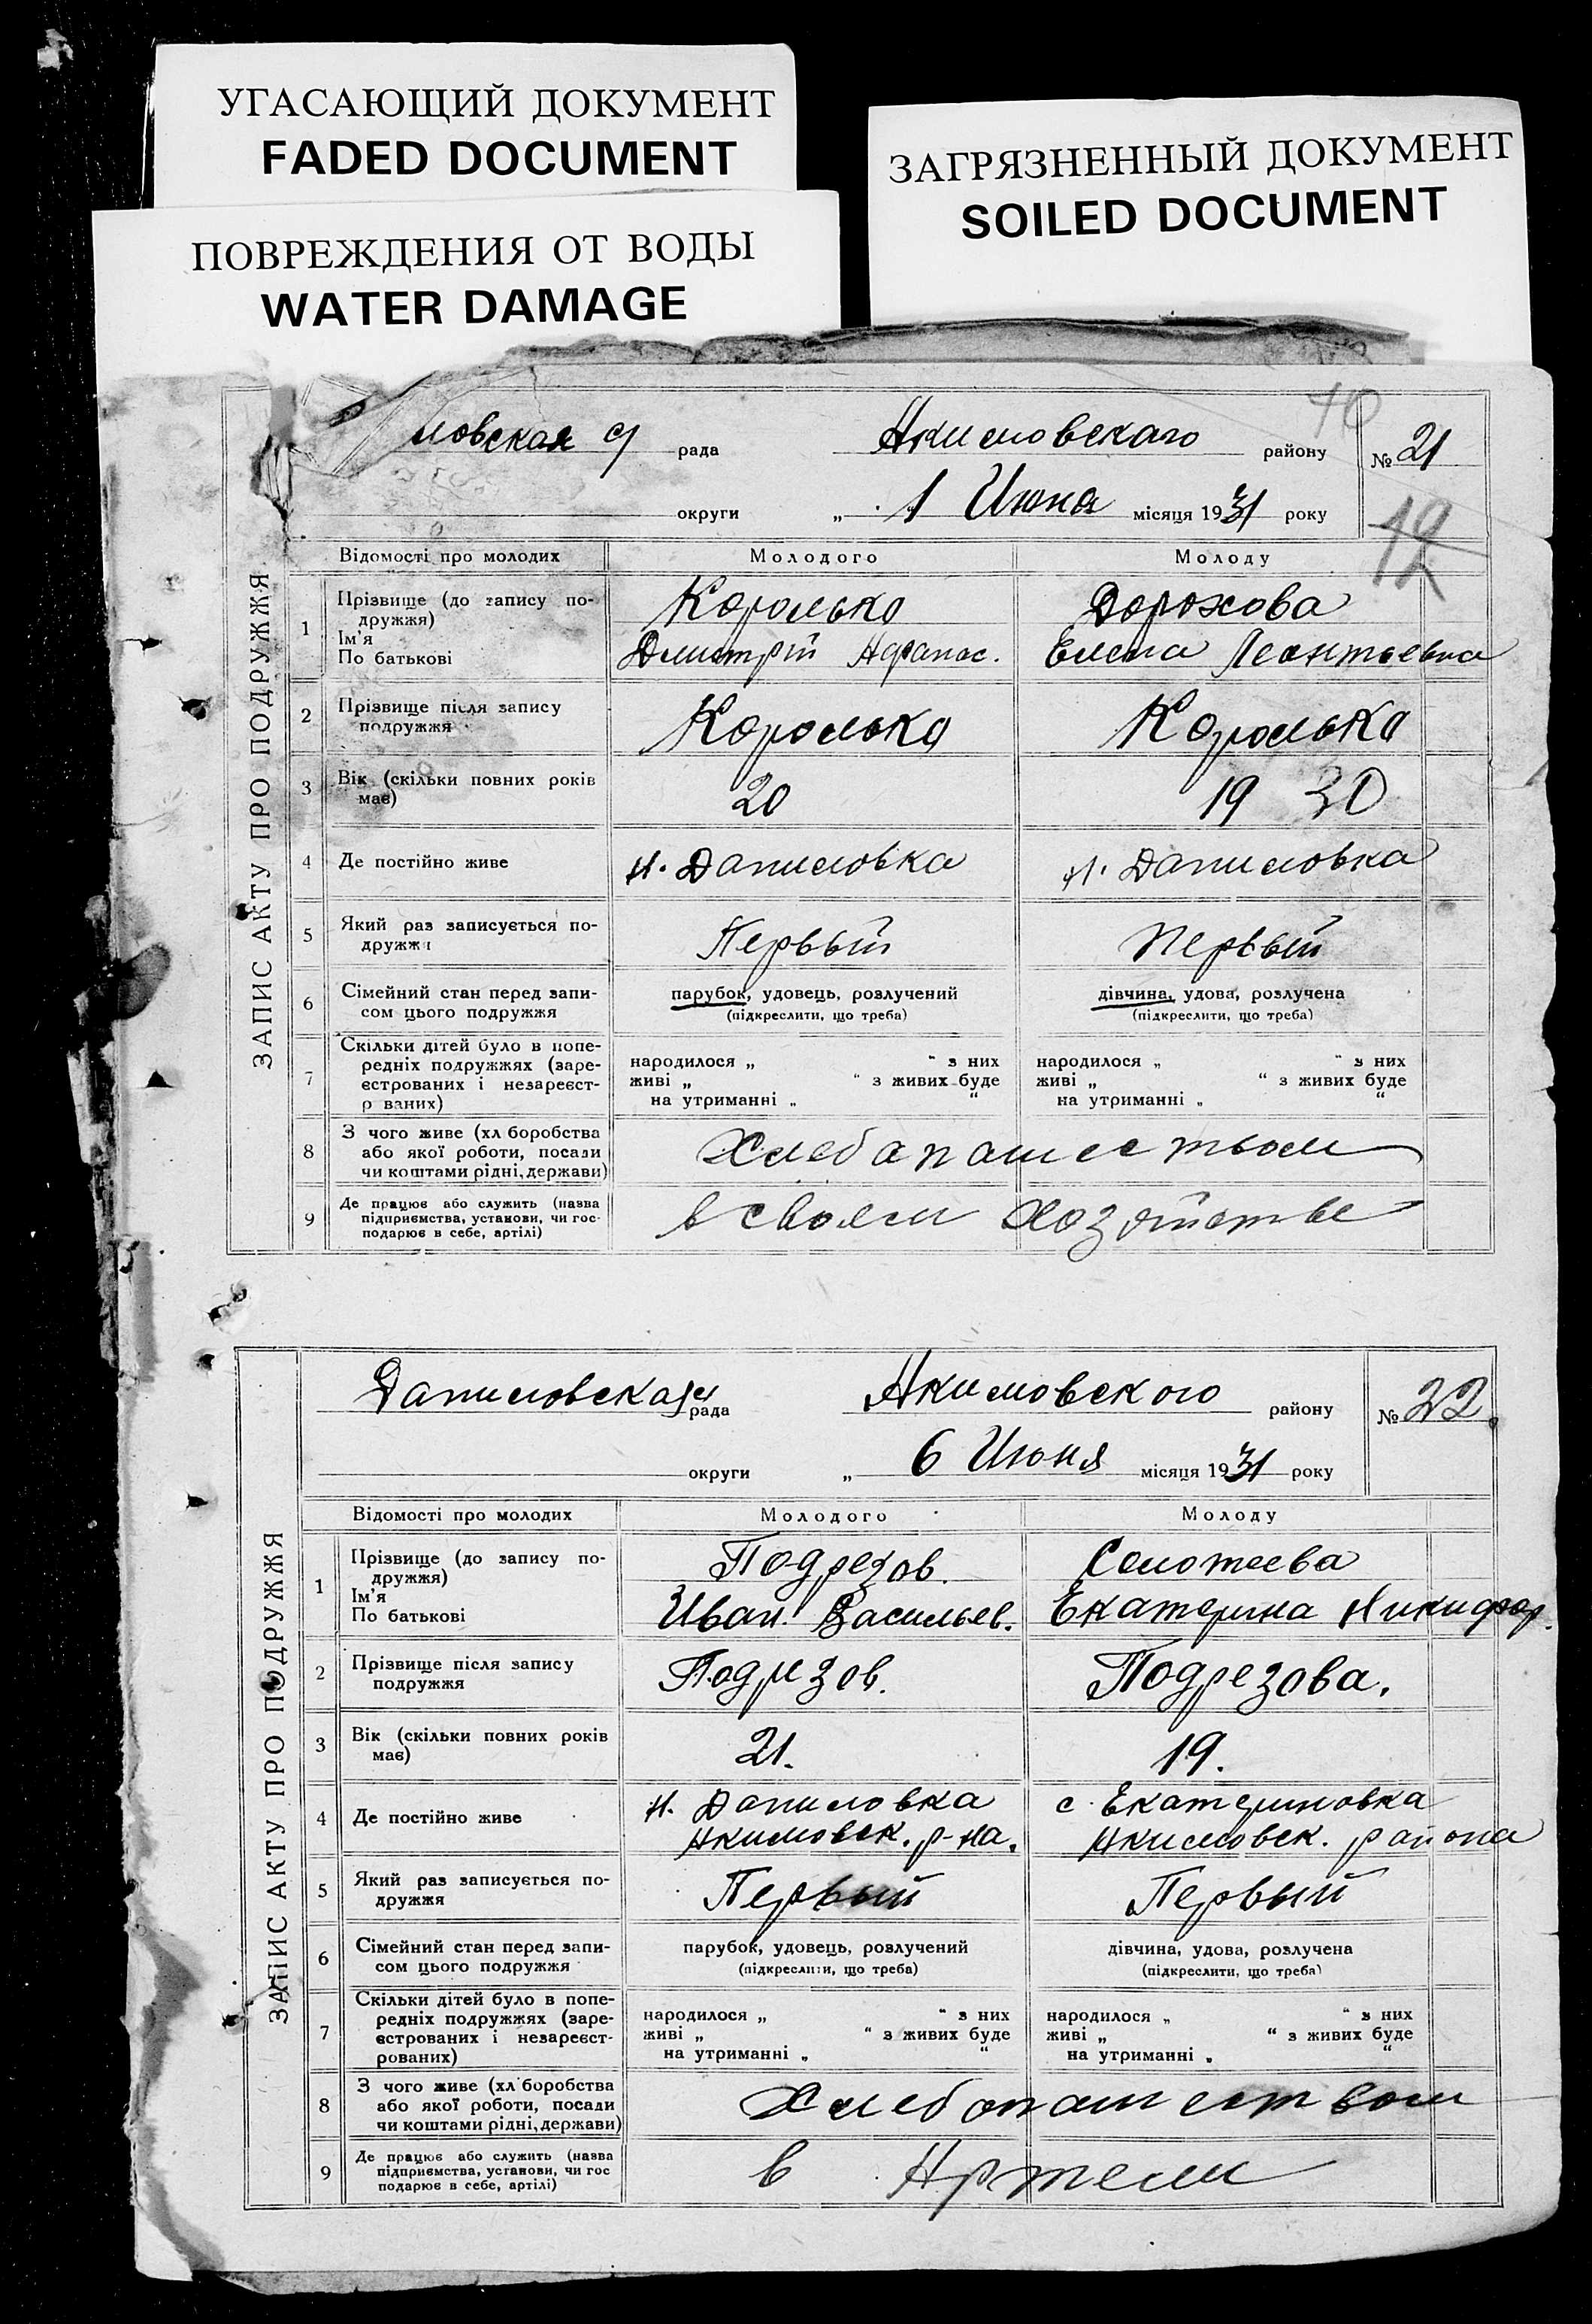 УГАСАЮЩИЙ ДОКУМЕНТ
FADED DOCUMENT
ЗАГРЯЗНЕННЫЙ ДОКУМЕНТ
SOILED DOCUMENT
ПОВРЕЖДЕНИЯ ОТ ВОДЫ
WATER DAMAGE
10
ЗАПИС АКТУ ПРО ПОДРУЖЖЯ
ловская с/ рада Акимовскаго району № 21
округи „ 1 Июня місяця 1931 року
12
Відомості про молодих Молодого Молоду
1 Прізвище (до запису по-
дружжя) Королько Дорохова
Ім'я
По батькові Дмитрій Афанас. Елена Леонтьевна
2 Прізвище після запису
подружжя Королько Королько
3 Вік (скільки повних років
має) 20 19 30
4 Де постійно живе н. Даниловка н. Даниловка
5 Який раз записується по-
дружжя Первый Первый
6 Сімейний стан перед запи- парубок, удовець, розлучений дівчина, удова, розлучена
сом цього подружжя (підкреслити, що треба) (підкреслити, що треба)
7 Скільки дітей було в попе-
редніх подружжях (заре- народилося „ “ з них народилося „ “ з них
єстрованих і незареєст- живі „ “ з живих буде живі „ “ з живих буде
р ваних) на утриманні „ “ на утриманні „ “
8 З чого живе (хл боробства
або якої роботи, посади Хлебапашеством
чи коштами рідні, держави)
9 Де працює або служить (назва
підприємства, установи, чи гос- в своем хозяйстве
подарює в себе, артілі)
ЗАПИС АКТУ ПРО ПОДРУЖЖЯ
Даниловская с/ рада Акимовского району № 22.
округи „ 6 Июня місяця 1931 року
Відомості про молодих Молодого Молоду
1 Прізвище (до запису по-
дружжя) Подрезов.
Ім'я
По батькові Иван Васильев. Екатерина Никифор.
2 Прізвище після запису
подружжя Подрезов. Подрезова.
3 Вік (скільки повних років
має) 21. 19.
4 Де постійно живе н. Даниловка с. Екатериновка
Акимовск. р-на. Акимовск. района
5 Який раз записується по-
дружжя Первый Первый
6 Сімейний стан перед запи- парубок, удовець, розлучений дівчина, удова, розлучена
сом цього подружжя (підкреслити, що треба) (підкреслити, що треба)
7 Скільки дітей було в попе-
редніх подружжях (заре- народилося „ “ з них народилося „ “ з них
єстрованих і незареєст- живі „ “ з живих буде живі „ “ з живих буде
рованих) на утриманні „ “ на утриманні „ “
8 З чого живе (хл боробства
або якої роботи, посади Хлебопашеством
чи коштами рідні, держави)
9 Де працює або служить (назва
підприємства, установи, чи гос в Артели
подарює в себе, артілі)